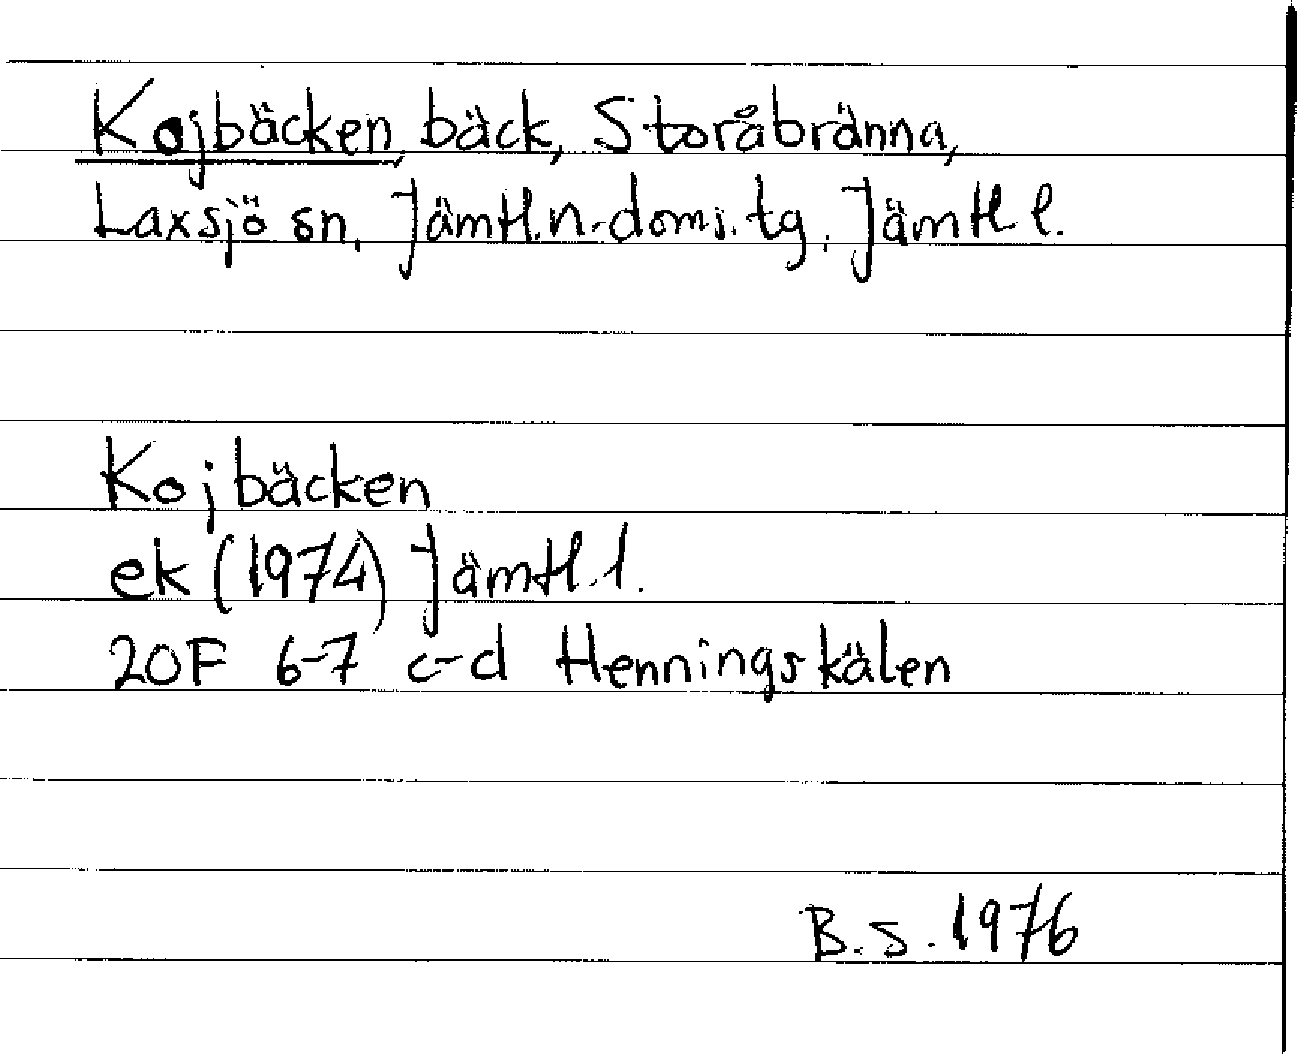 Kojbäcken, bäck, Storåbränna,
Laxsjö sn, Jämtl.n.doms.tg. Jämtl l.
Kojbäcken
ek (1974) Jämtl.l.
20F 6-7 c-d Henningskälen
B.S. 1976